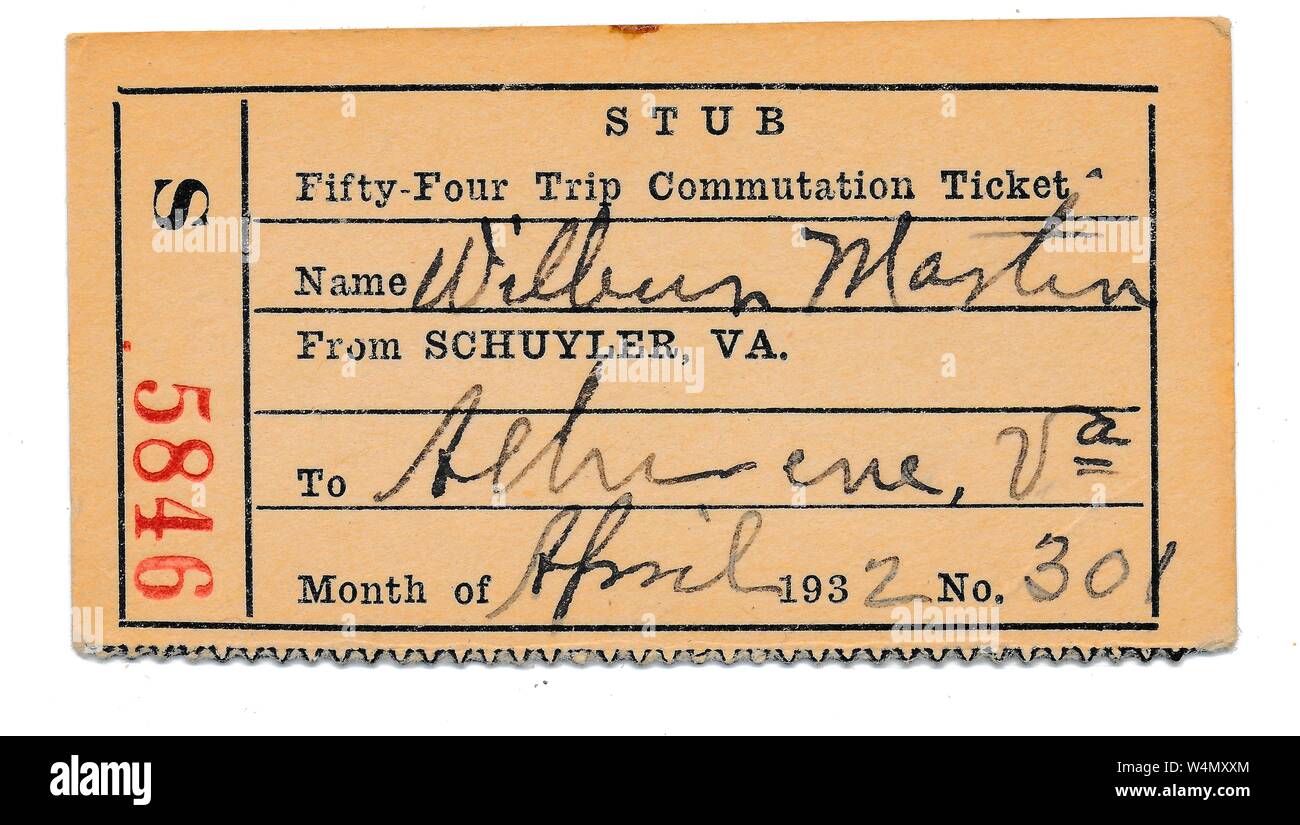 STUB
Fifty-Four Trip Commutation Ticket
Name Wilbur Martin
From SCHUYLER, VA.
To Va
Month of April 1932 No. 301
S
5846
alamy
Image ID: W4MXXM
www.alamy.com